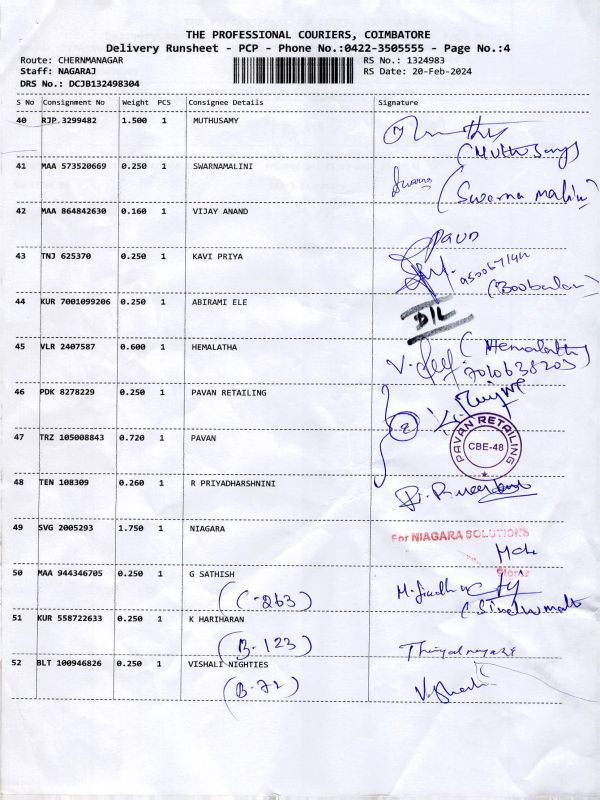 THE PROFESSIONAL COURIERS, COIMBATORE
Delivery Runsheet - PCP - Phone No.:0422-3505555 - Page No.:4
Route: CHERNMANAGAR
RS No.: 1324983
Staff: NAGARAJ
RS Date: 20-Feb-2024
DRS No.: DCJB132498304
S No Consignment No Weight PCS Consignee Details Signature
40 RJP 3299482 1.500 1 MUTHUSAMY
(Muthusamy)
41 MAA 573520669 0.250 1 SWARNAMALINI
Swarna (Swarna malini)
42 MAA 864842630 0.160 1 VIJAY ANAND
43 TNJ 625370 0.250 1 KAVI PRIYA
44 KUR 7001099206 0.250 1 ABIRAMI ELE
D/L
45 VLR 2407587 0.600 1 HEMALATHA
(Hemalatha)
7010638205
46 PDK 8278229 0.250 1 PAVAN RETAILING
2
47 TRZ 105008843 0.720 1 PAVAN
PAVAN RETAILING
CBE-48
48 TEN 108309 0.260 1 R PRIYADHARSHNINI
49 SVG 2005293 1.750 1 NIAGARA
For NIAGARA SOLUTIONS
50 MAA 944346705 0.250 1 G SATHISH
(C-263)
51 KUR 558722633 0.250 1 K HARIHARAN
(B-123)
52 BLT 100946826 0.250 1 VISHALI NIGHTIES
(B-72)